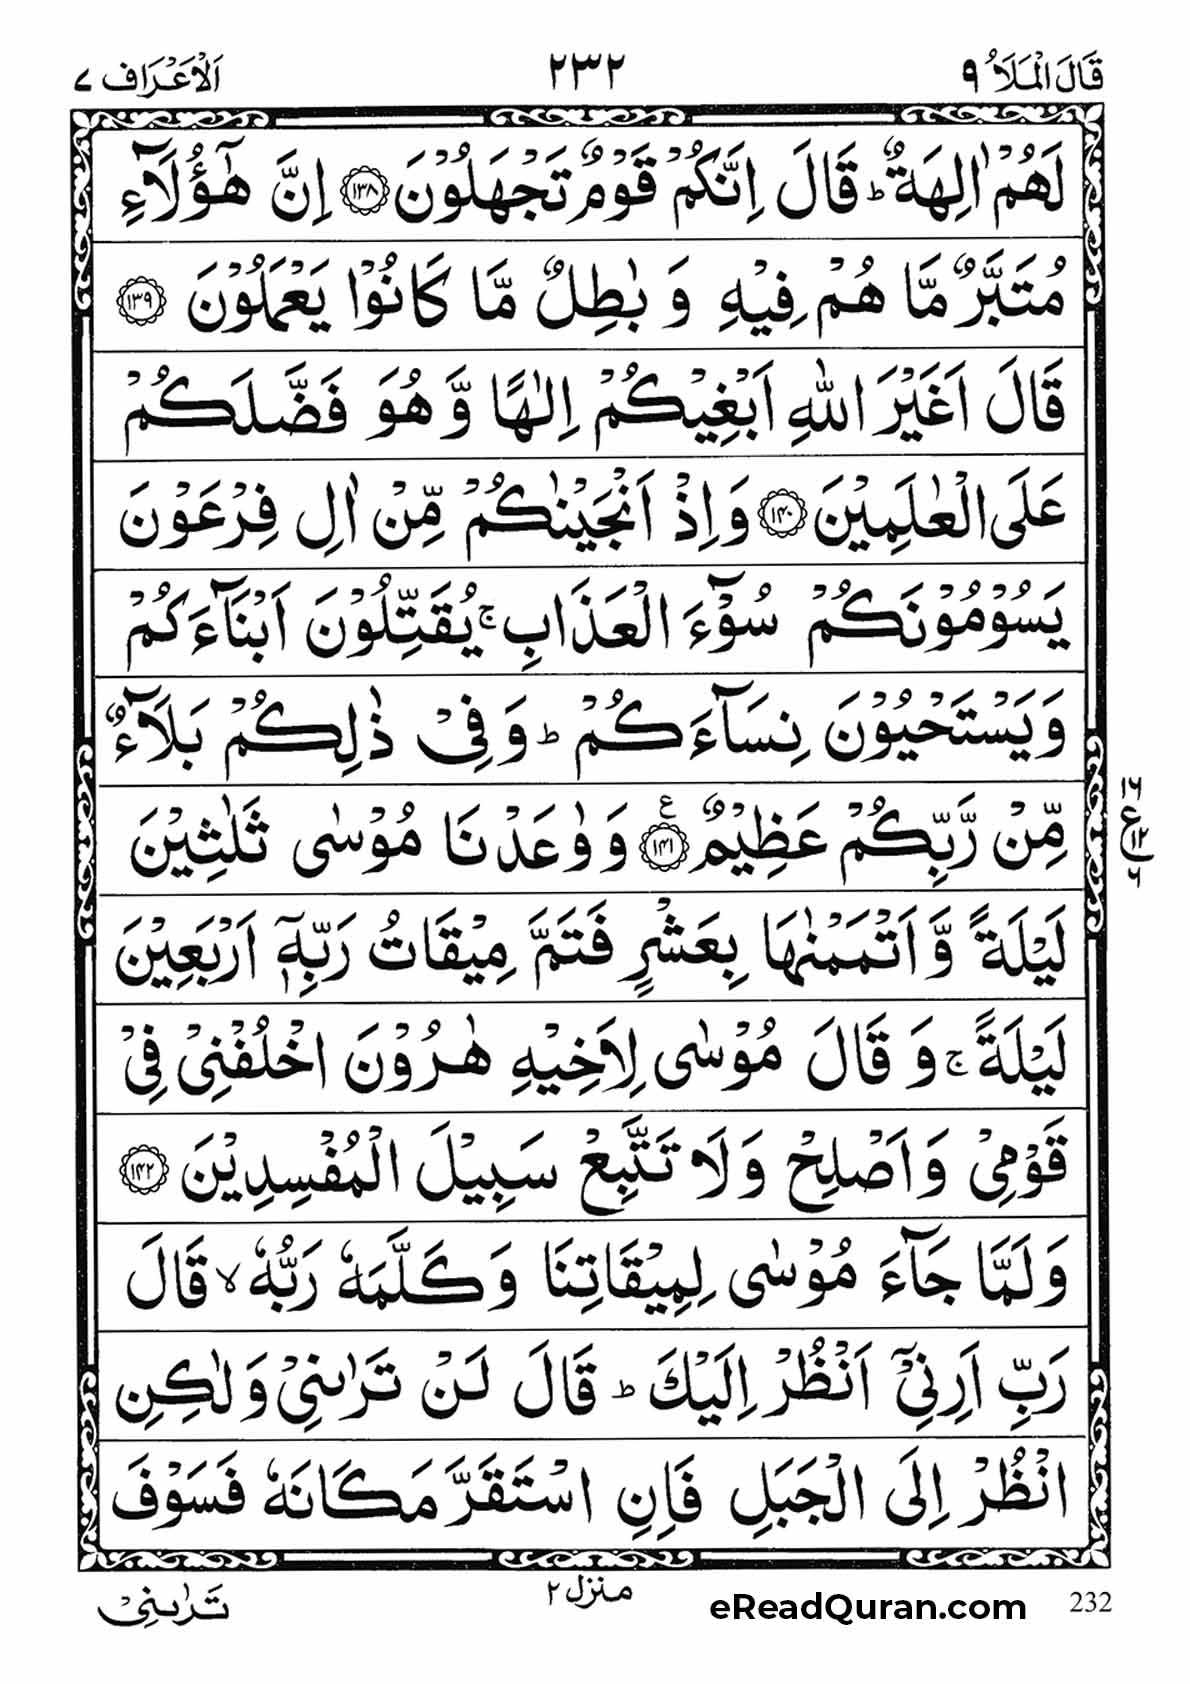 قَالَ الْمَلَاُ ۹ ۲۳۲ اَلْاَعْرَاف ۷
لَهُمْ اٰلِهَةٌ ؕ قَالَ اِنَّكُمْ قَوْمٌ تَجْهَلُوْنَ ۱۳۸ اِنَّ هٰٓؤُلَآءِ
مُتَبَّرٌ مَّا هُمْ فِيْهِ وَ بٰطِلٌ مَّا كَانُوْا يَعْمَلُوْنَ ۱۳۹
قَالَ اَغَيْرَ اللّٰهِ اَبْغِيْكُمْ اِلٰهًا وَّ هُوَ فَضَّلَكُمْ
عَلَى الْعٰلَمِيْنَ ۱۴۰ وَاِذْ اَنْجَيْنٰكُمْ مِّنْ اٰلِ فِرْعَوْنَ
يَسُوْمُوْنَكُمْ سُوْٓءَ الْعَذَابِ ۚ يُقَتِّلُوْنَ اَبْنَآءَكُمْ
وَيَسْتَحْيُوْنَ نِسَآءَكُمْ ؕ وَفِيْ ذٰلِكُمْ بَلَآءٌ
مِّنْ رَّبِّكُمْ عَظِيْمٌ ۱۴۱ ع وَوٰعَدْنَا مُوْسٰى ثَلٰثِيْنَ
۱۶
ع ۱۲
۶
لَيْلَةً وَّاَتْمَمْنٰهَا بِعَشْرٍ فَتَمَّ مِيْقَاتُ رَبِّهٖٓ اَرْبَعِيْنَ
لَيْلَةً ۚ وَ قَالَ مُوْسٰى لِاَخِيْهِ هٰرُوْنَ اخْلُفْنِيْ فِيْ
قَوْمِيْ وَاَصْلِحْ وَلَا تَتَّبِعْ سَبِيْلَ الْمُفْسِدِيْنَ ۱۴۲
وَلَمَّا جَآءَ مُوْسٰى لِمِيْقَاتِنَا وَكَلَّمَهٗ رَبُّهٗ ۙ قَالَ
رَبِّ اَرِنِيْٓ اَنْظُرْ اِلَيْكَ ؕ قَالَ لَنْ تَرٰىنِيْ وَلٰكِنِ
انْظُرْ اِلَى الْجَبَلِ فَاِنِ اسْتَقَرَّ مَكَانَهٗ فَسَوْفَ
تَرٰىنِيْ منزل ۲ eReadQuran.com 232